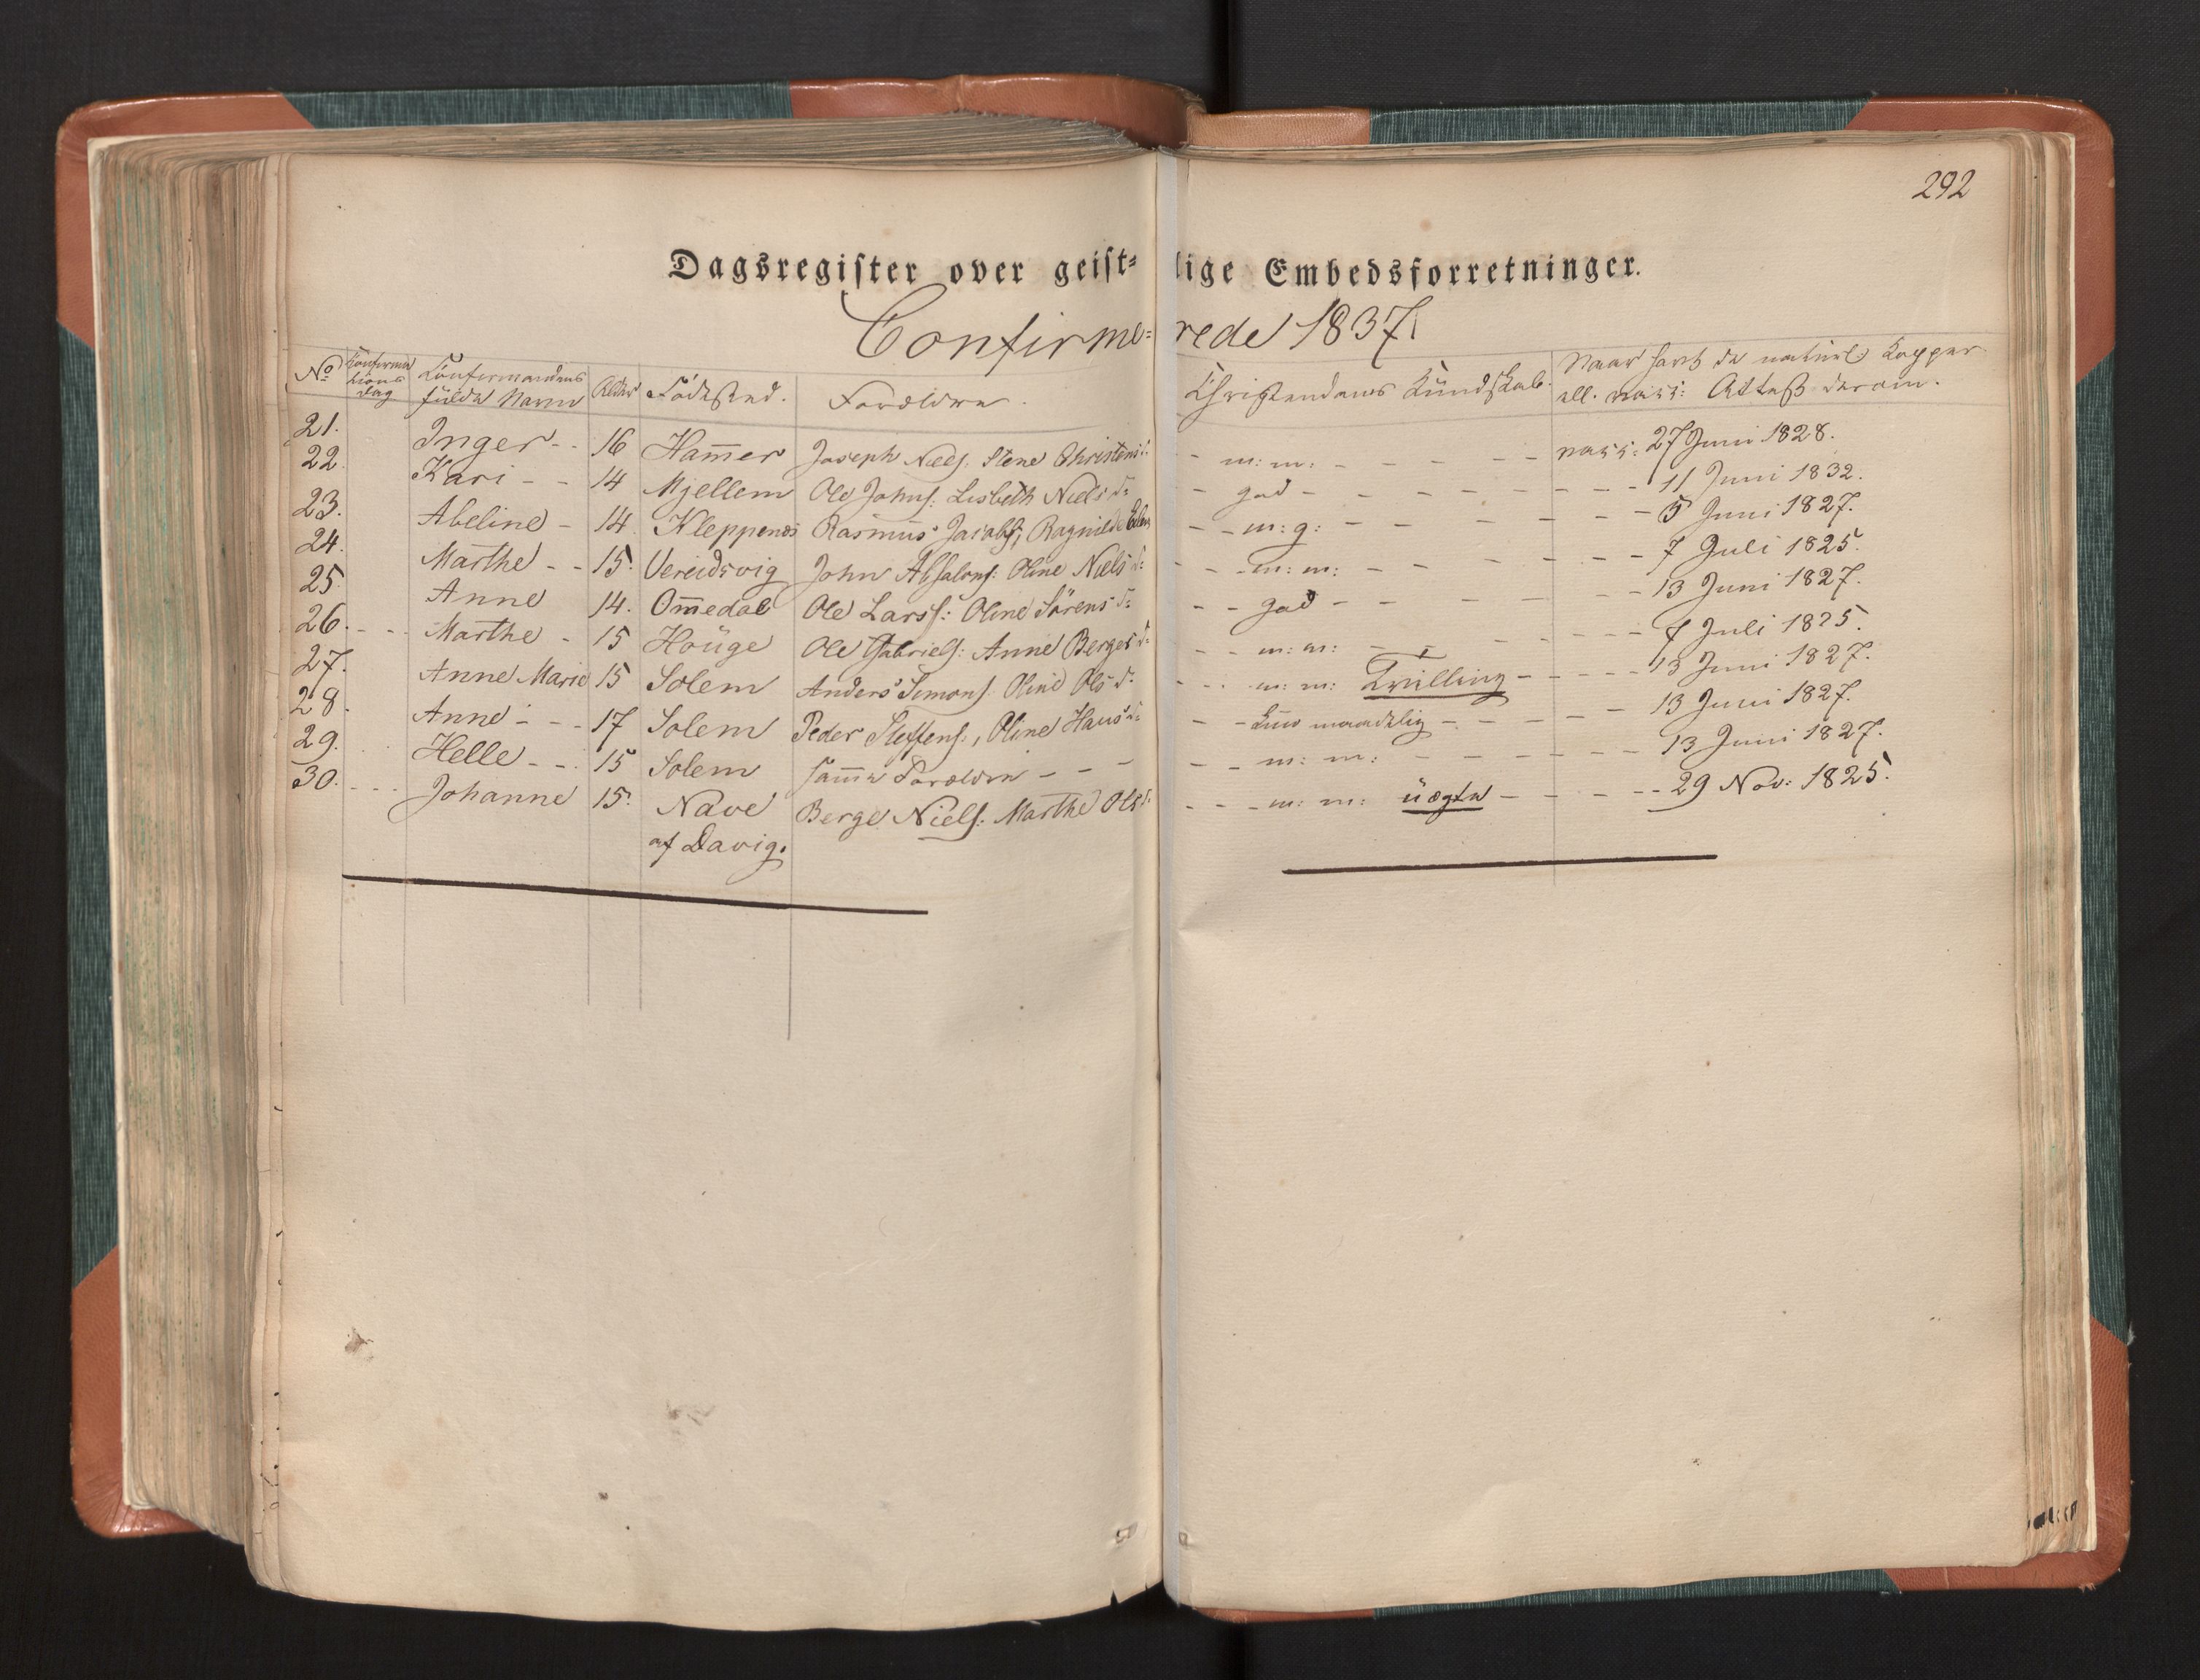 292
Dagsregister over geist=lige Embedsforretninger.
Confirme=rede 1837.
No Confirmations Dag Confirmandens fulde Navn Alder Fødested. Forældre. Christendoms Kundskab. Naar havt de naturl: Kopper ell. vacc: Attest derom.
21. Inger - - 16 Ham̅er Joseph Niels. Stene Christens d: - m: m: - - - - - vacc: 27 Juni 1828.
22. Kari - - 14 Mjellem Ole Johns: Lisbeth Niels d: - god - - - - - - - - 11 Juni 1832.
23. Abeline - 14 Kleppenes Rasmus Jacobs; Ragnilde - - m: g: - - - - - - - 5 Juni 1827.
24. Marthe - - 15. Vereidsvig John Absalons: Oline Niels d: - - m: m: - - - - - - - 7 Juli 1825.
25. Anne 14. Om̅edal Ole Larss: Oline Sörens d: - - god - - - - - - 13 Juni 1827.
26. - - - Marthe - 15 Houge Ole Gabriels: Anne Berges d: - - m: m: - - - - - - - 7 Juli 1825.
27. Anne Marie 15 Solem Anders Simons. Oline Ols d: - - - m: m: Tvilling - - - - - 13 Juni 1827.
28. Anne - - - 17 Solem Peder Steffens:, Oline Hans d: - - kun maadelig - - - - - - 13 Juni 1827.
29. Helle - - - 15 Solem sam̅e Forældre - - - - - m: m: - - - - - - 13 Juni 1827.
30. - - - Johanne 15. Nave Berge Niels: Marthe Ols d: - - - m: m: uægte - - - - - 29 Nov: 1825.
af Davig.